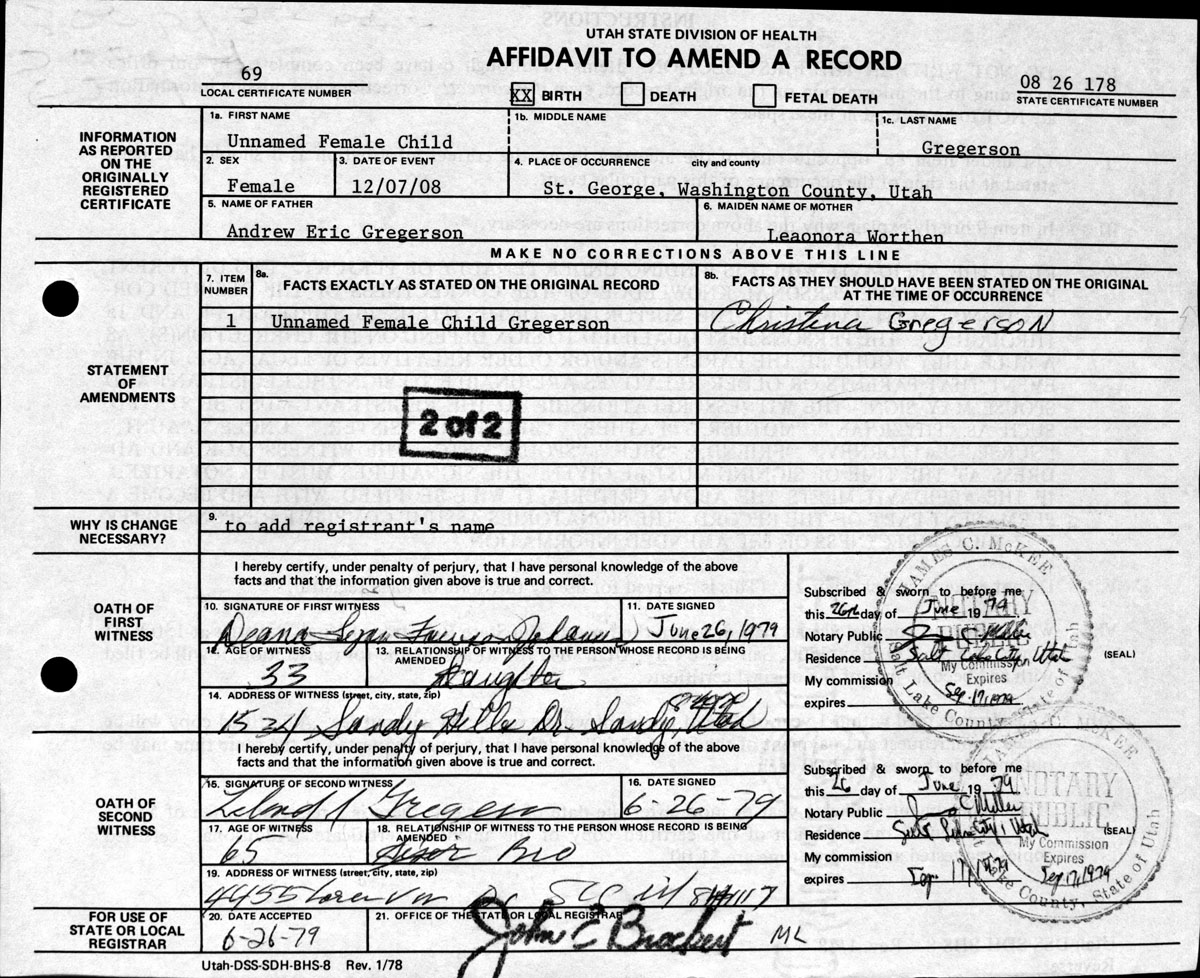 UTAH STATE DIVISION OF HEALTH
AFFIDAVIT TO AMEND A RECORD
69
LOCAL CERTIFICATE NUMBER
XX BIRTH DEATH FETAL DEATH
08 26 178
STATE CERTIFICATE NUMBER
INFORMATION
AS REPORTED
ON THE
ORIGINALLY
REGISTERED
CERTIFICATE
1a. FIRST NAME
Unnamed Female Child
1b. MIDDLE NAME
1c. LAST NAME
Gregerson
2. SEX
Female
3. DATE OF EVENT
12/07/08
4. PLACE OF OCCURRENCE city and county
St. George, Washington County, Utah
5. NAME OF FATHER
Andrew Eric Gregerson
6. MAIDEN NAME OF MOTHER
Leaonora Worthen
MAKE NO CORRECTIONS ABOVE THIS LINE
STATEMENT
OF
AMENDMENTS
7. ITEM
NUMBER
8a.
FACTS EXACTLY AS STATED ON THE ORIGINAL RECORD
8b.
FACTS AS THEY SHOULD HAVE BEEN STATED ON THE ORIGINAL
AT THE TIME OF OCCURRENCE
1 Unnamed Female Child Gregerson Christina Gregerson
2 of 2
WHY IS CHANGE
NECESSARY?
9. to add registrant's name
OATH OF
FIRST
WITNESS
I hereby certify, under penalty of perjury, that I have personal knowledge of the above
facts and that the information given above is true and correct.
10. SIGNATURE OF FIRST WITNESS
Deana
11. DATE SIGNED
June 26, 1979
12. AGE OF WITNESS
33
13. RELATIONSHIP OF WITNESS TO THE PERSON WHOSE RECORD IS BEING
AMENDED
Daughter
14. ADDRESS OF WITNESS (street, city, state, zip)
1534 Sandy Hills Dr. Sandy, Utah
Subscribed & sworn to before me
this 26th day of June 1979
Notary Public
Residence Salt Lake City, Utah
(SEAL)
My commission
expires Sep. 17, 1979
JAMES C. McKEE
NOTARY
PUBLIC
My Commission
Expires
Salt Lake County, State of Utah
OATH OF
SECOND
WITNESS
I hereby certify, under penalty of perjury, that I have personal knowledge of the above
facts and that the information given above is true and correct.
15. SIGNATURE OF SECOND WITNESS
16. DATE SIGNED
6-26-79
17. AGE OF WITNESS
65
18. RELATIONSHIP OF WITNESS TO THE PERSON WHOSE RECORD IS BEING
AMENDED
Bro
19. ADDRESS OF WITNESS (street, city, state, zip)
4455 Dr SLC
Subscribed & sworn to before me
this 26 day of June 1979
Notary Public
Residence Salt Lake City, Utah
(SEAL)
My commission
expires Sep. 17, 1979
JAMES C. McKEE
NOTARY
PUBLIC
My Commission
Expires
Sep 17, 1979
Salt Lake County, State of Utah
FOR USE OF
STATE OR LOCAL
REGISTRAR
20. DATE ACCEPTED
6-26-79
21. OFFICE OF THE STATE OR LOCAL REGISTRAR
John E Brockert ML
Utah-DSS-SDH-BHS-8 Rev. 1/78